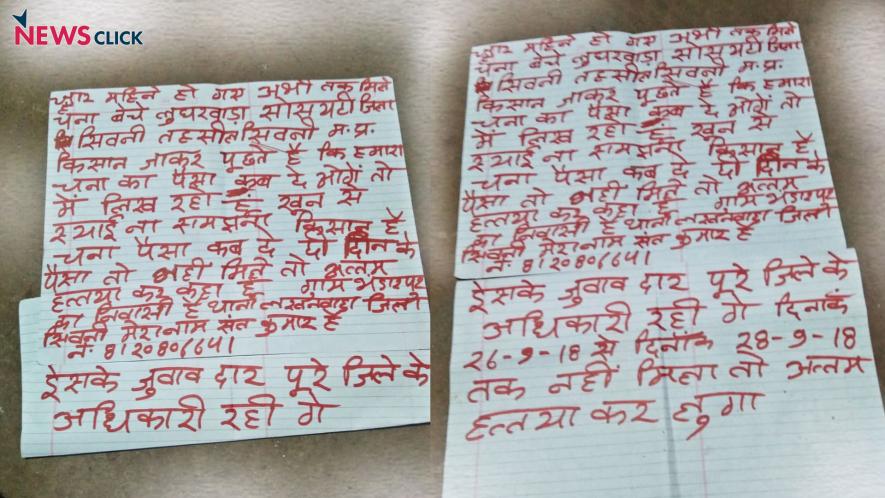 NEWSCLICK
चार महिने हो गए अभी तक मिले
चना बेचे लुघरवाड़ा सोसायटी जिला
सिवनी तहसील सिवनी म.प्र.
किसान जाकर पूछते है कि हमारा
चना का पैसा कब दे भोगें तो
में लिख रहा हु खून से
स्याई ना समझना किसान है
चना पैसा कब दे दो दिन के
पैसा तो नही मिले तो अत्तम
हत्तया कर गाम
का निवासी है थाना लखनवाड़ा जिला
सिवनी मेरा नाम संत कुमार है
नं.
ईसके जुवाब दार पूरे जिले के
अधिकारी रही गे
चार महिने हो गए अभी तक मिले
चना बेचे लुघरवाड़ा सोसायटी जिला
सिवनी तहसील सिवनी म.प्र.
किसान जाकर पूछते है कि हमारा
चना का पैसा कब दे भोगें तो
में लिख रहा हु खून से
स्याई ना समझना किसान है
चना पैसा कब दे दो दिन के
पैसा तो नही मिले तो अत्तम
हत्तया कर गाम
का निवासी है थाना लखनवाड़ा जिला
सिवनी मेरा नाम संत कुमार है
नं.
ईसके जुवाब दार पूरे जिले के
अधिकारी रही गे दिनांक
26-9-18 से दिनांक 28-9-18
तक नहीं मिला तो अत्तम
हत्तया कर लुगा